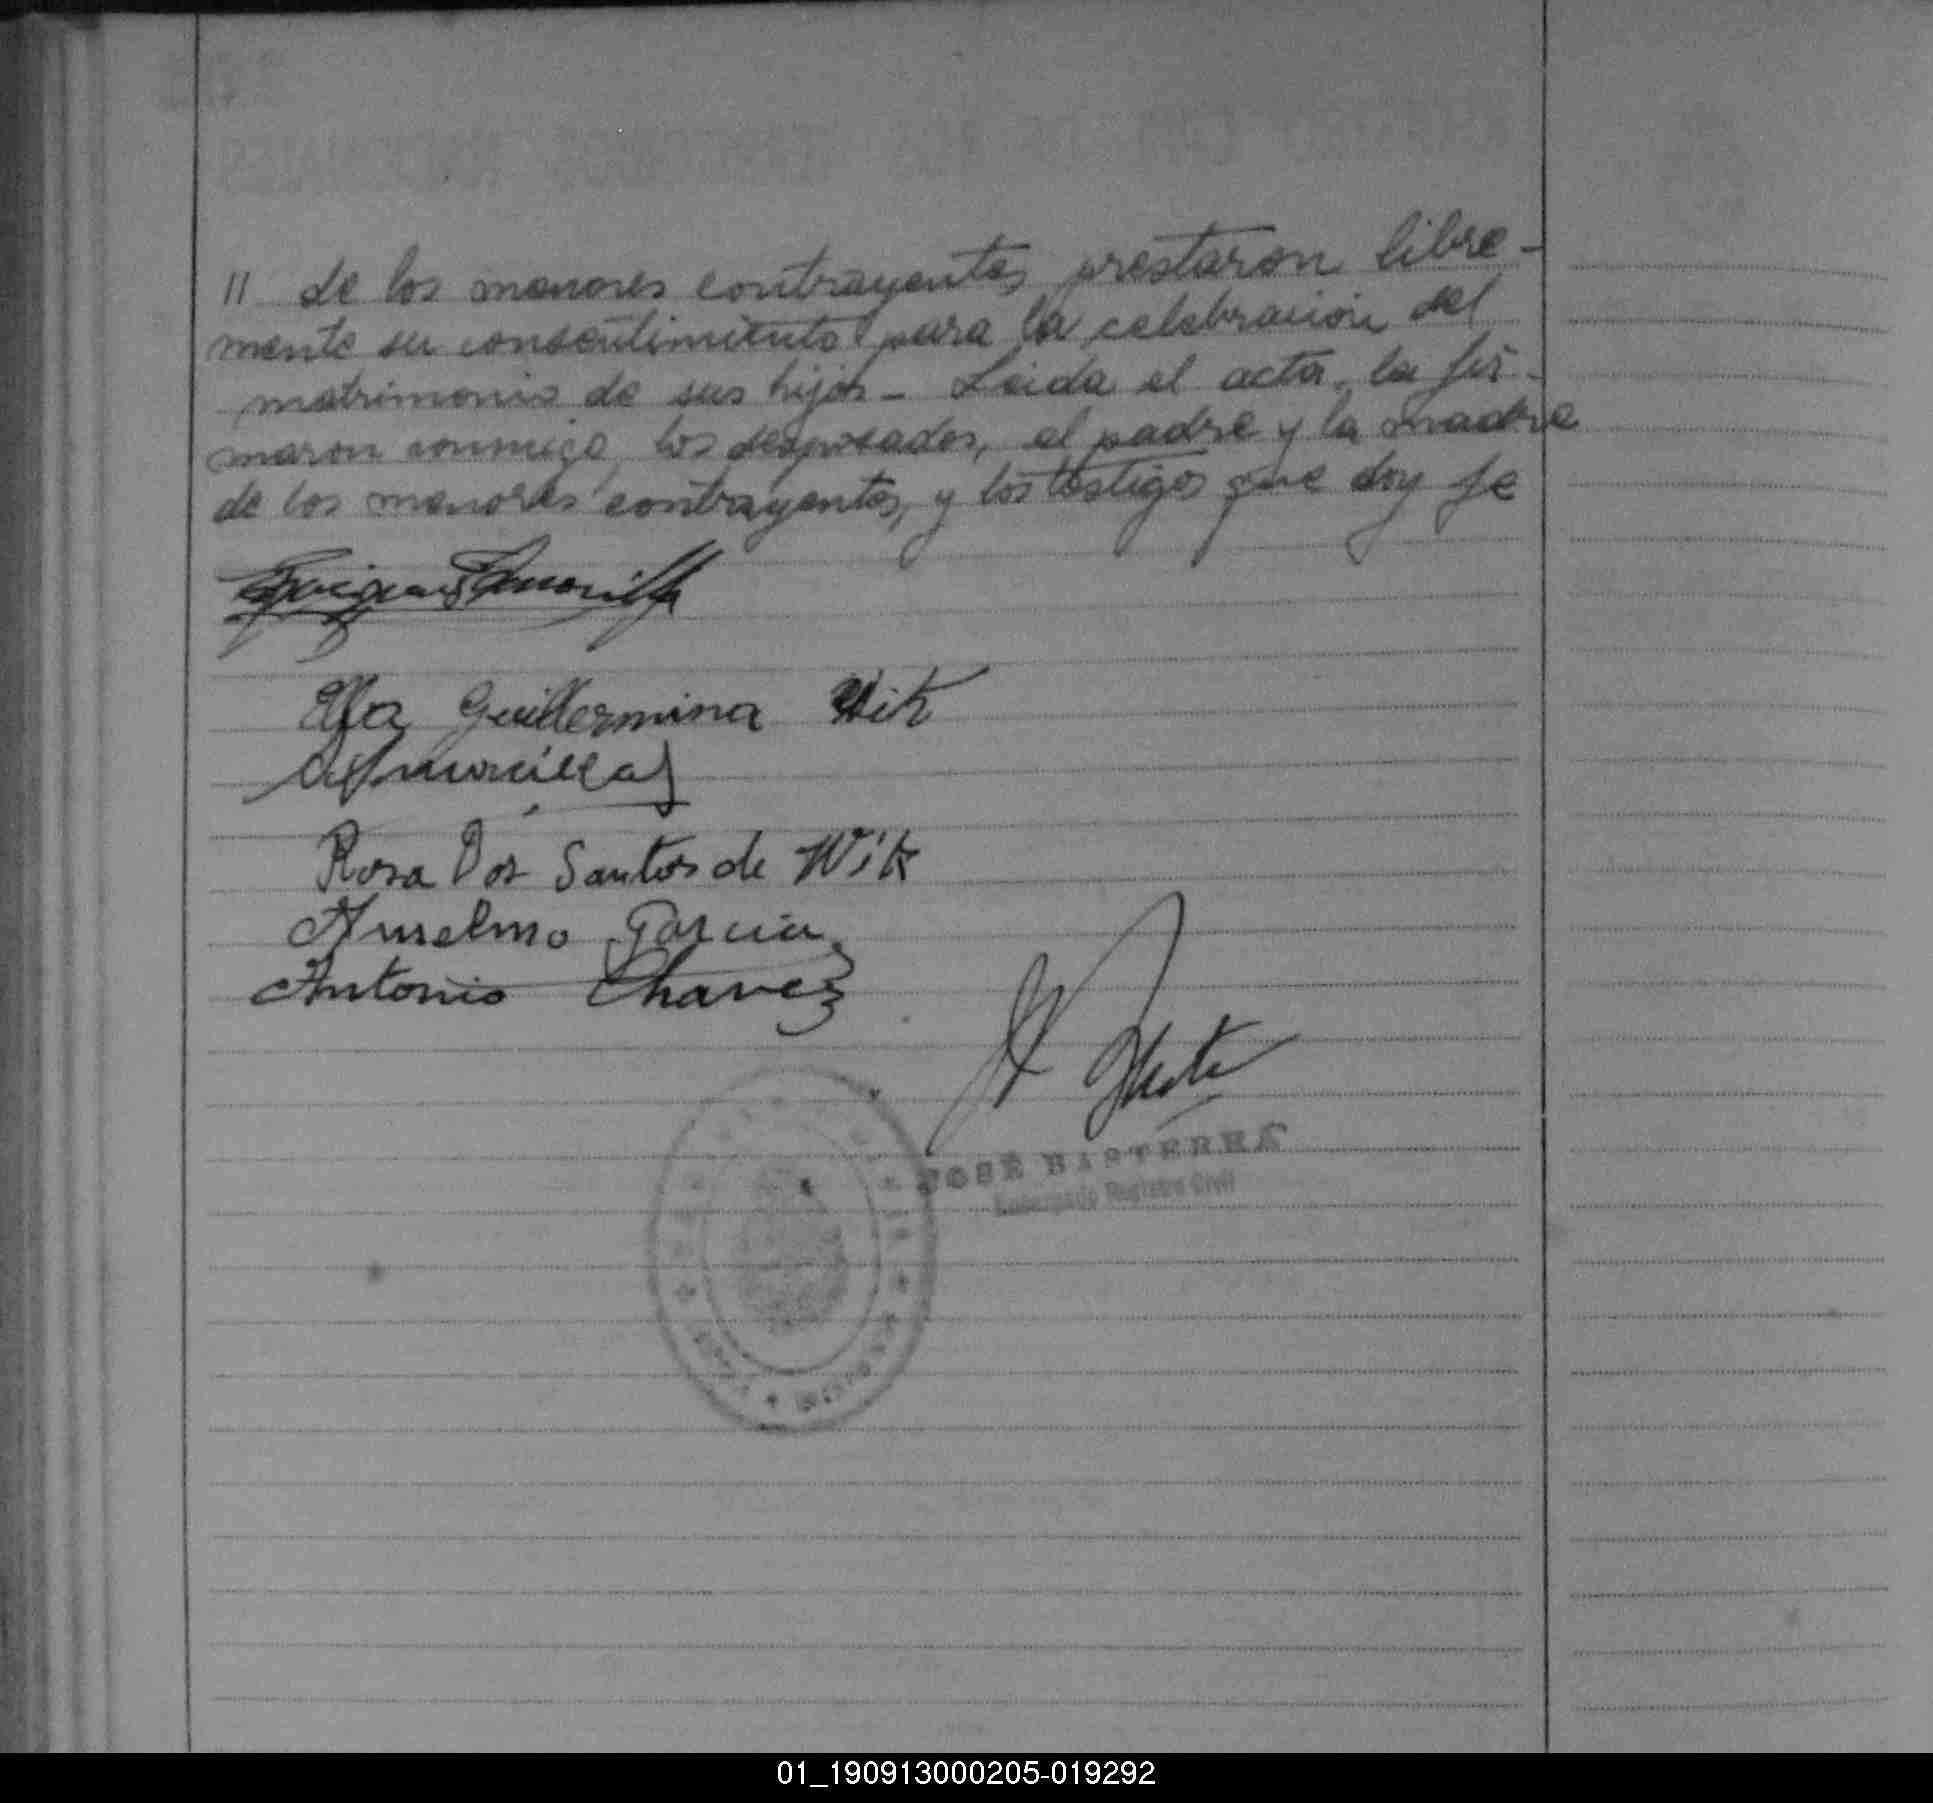 11 de los menores contrayentes prestaron libre-
mente su consentimiento para la celebración del
matrimonio de sus hijos - Leida el acta, la fir-
maron conmigo, los desposados, el padre y la madre
de los menores contrayentes, y los testigos que doy fe
Guillermina Wik
Rosa Dos Santos de Wik
Anselmo Garcia
Antonio Chavez
JOSÉ BASTERRA
Encargado Registro Civil
01_190913000205-019292